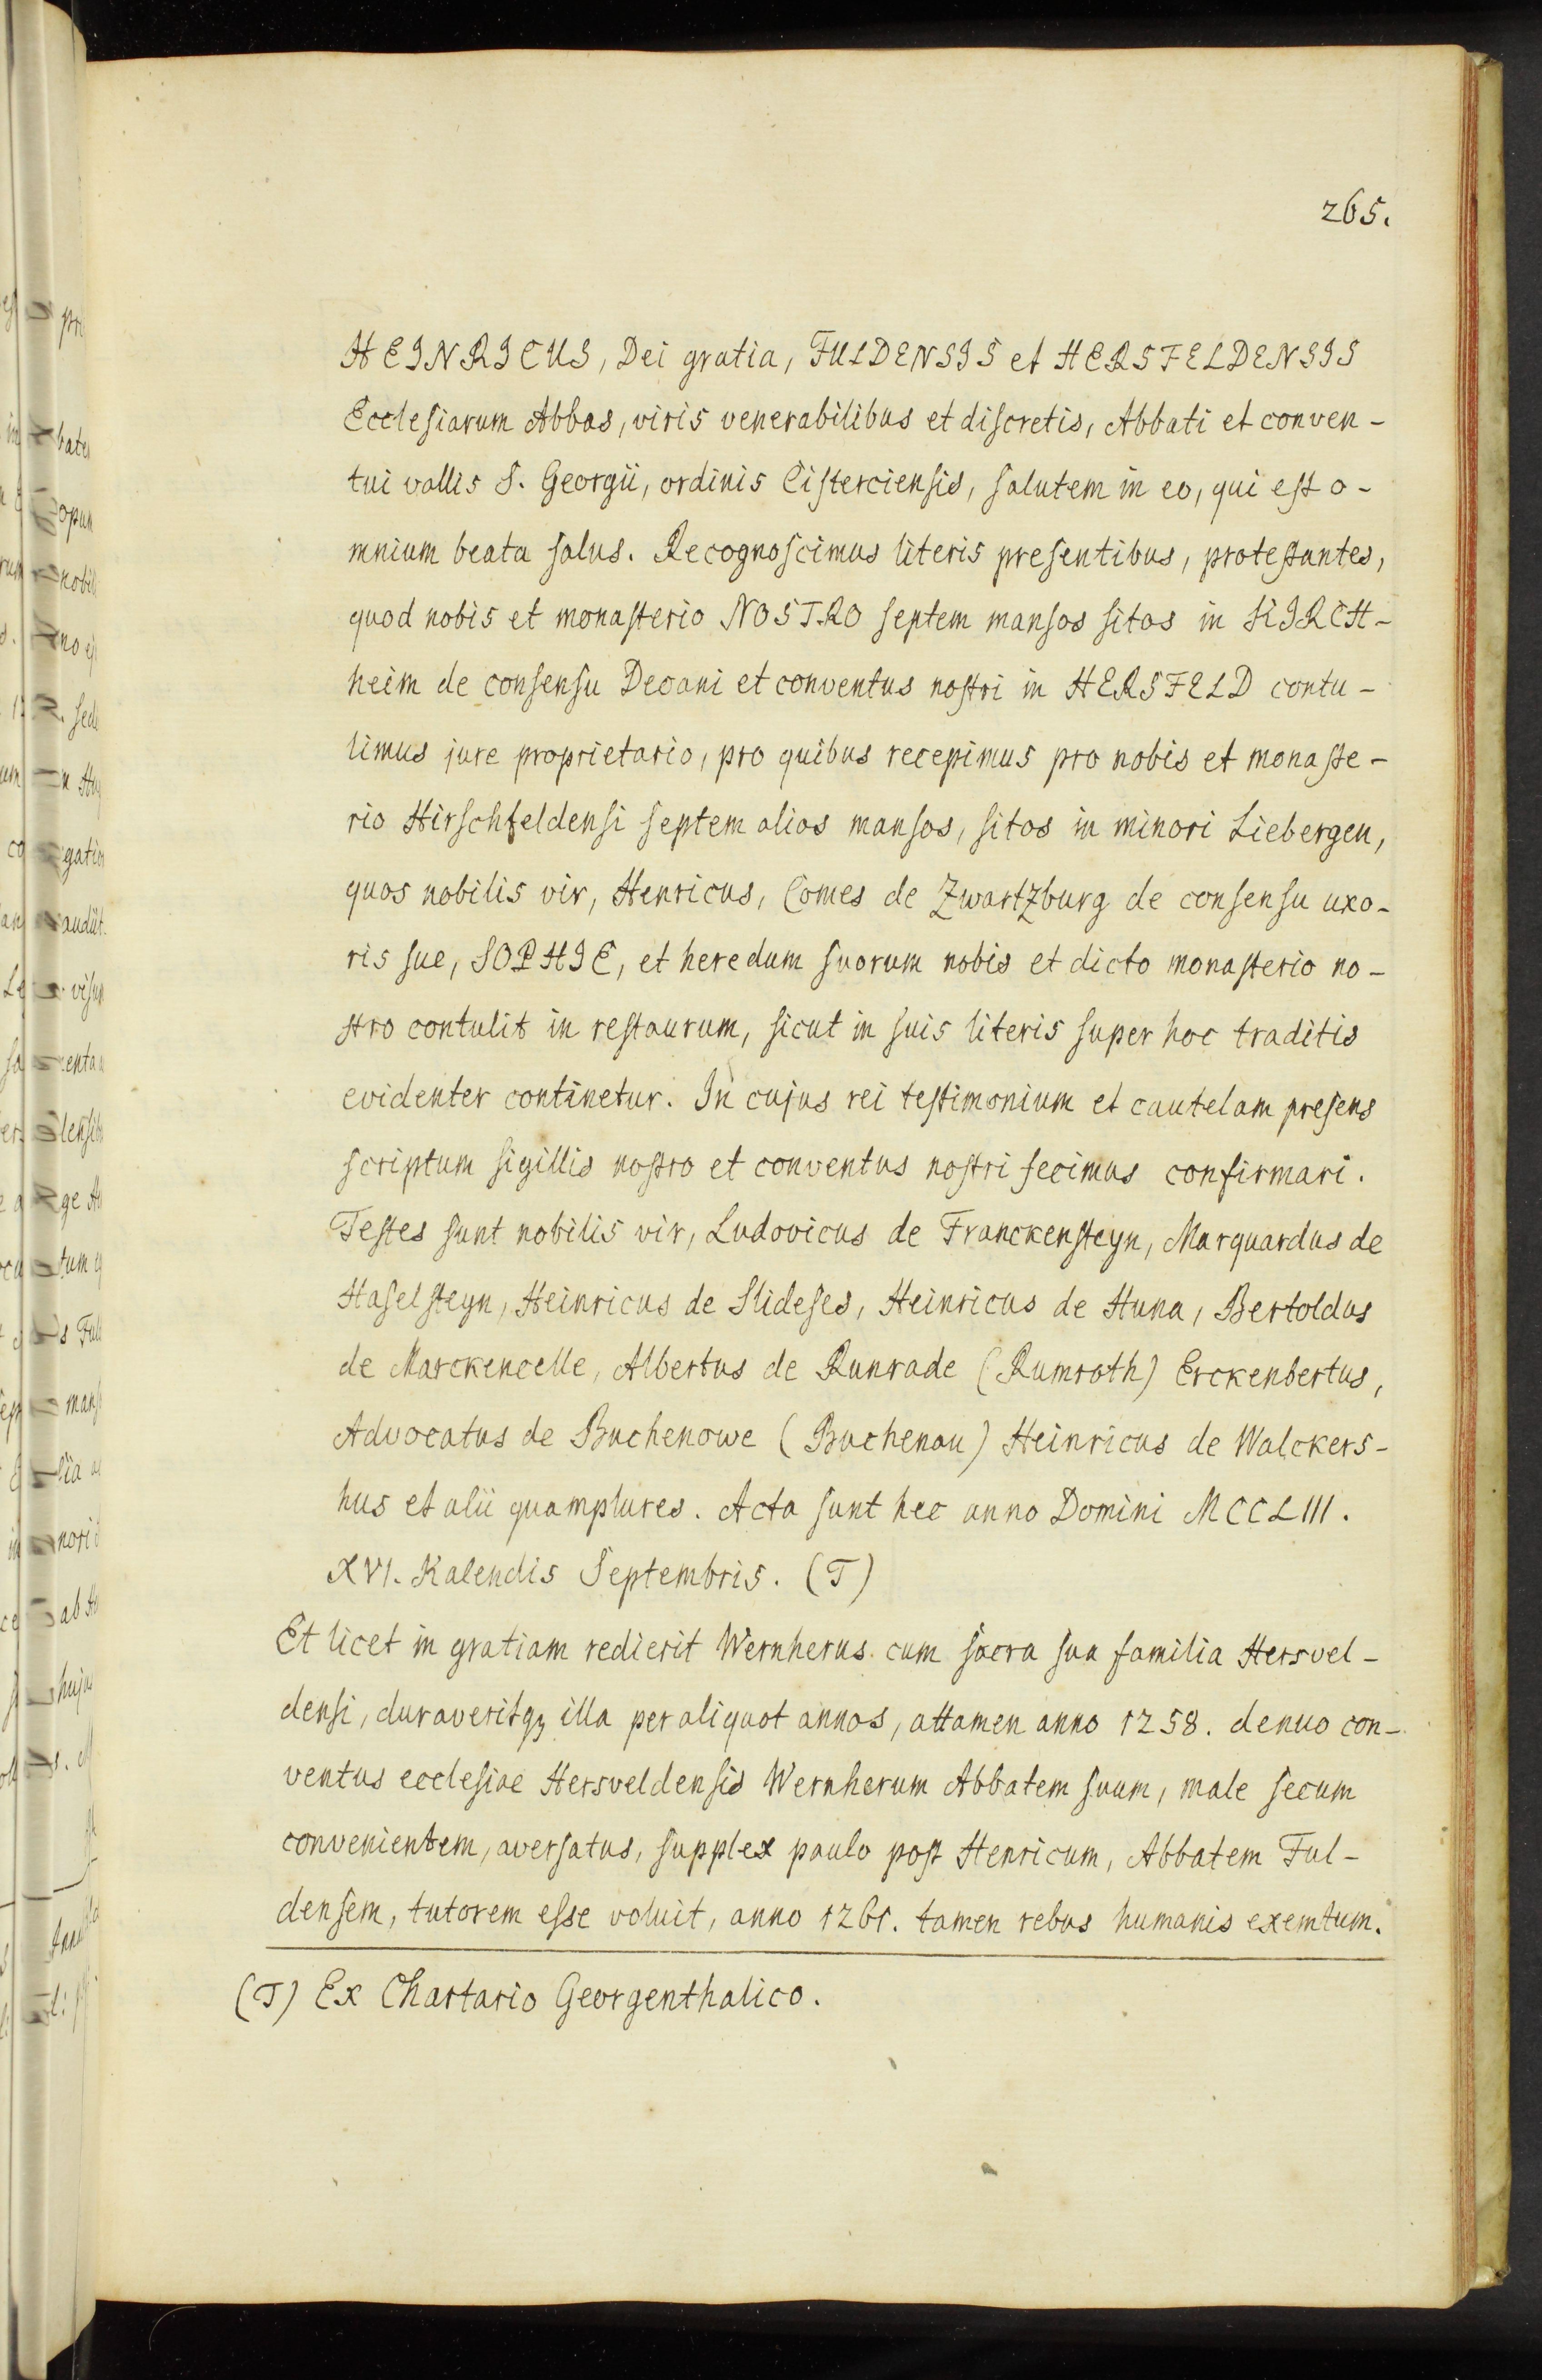 265.
HEINRICUS, Dei gratia, FULDENSIS et HERSFELDENSIS
Ecclesiarum Abbas, viris venerabilibus et discretis, Abbati et conven-
tui vallis S. Georgii, ordinis Cisterciensis, salutem in eo, qui est o-
mnium beata salus. Recognoscimus literis presentibus, protestantes,
quod nobis et monasterio NOSTRO septem mansos sitos in KIRCH-
heim de consensu Decani et conventus nostri in HERSFELD contu-
limus jure proprietario, pro quibus recepimus pro nobis et monaste-
rio Hirschfeldensi septem alios mansos, sitos in minori Liebergen,
quos nobilis vir, Henricus, Comes de Zwartzburg de consensu uxo-
ris sue, SOPHIE, et heredum suorum nobis et dicto monasterio no-
stro contulit in restaurum, sicut in suis literis super hoc traditis
evidenter continetur. In cujus rei testimonium et cautelam presens
scriptum sigillis nostro et conventus nostri fecimus confirmari.
Testes sunt nobilis vir, Ludovicus de Franckensteyn, Marquardus de
Haselsteyn, Heinricus de Slideses, Heinricus de Huna, Bertoldus
de Marckencelle, Albertus de Runrade (Rumroth) Erckenbertus,
Advocatus de Buchenowe (Buchenau) Heinricus de Walckers-
hus et alii quamplures. Acta sunt hec anno Domini MCCLIII.
XVI. Kalendis Septembris. (T)
Et licet in gratiam redierit Wernherus cum sacra sua familia Hersvel-
densi, duraveritqꝫ illa per aliquot annos, attamen anno 1258. denuo con-
ventus ecclesiae Hersveldensis Wernherum Abbatem suum, male secum
convenientem, aversatus, supplex paulo post Henricum, Abbatem Ful-
densem, tutorem esse voluit, anno 1261. tamen rebus humanis exemtum.
(T) Ex Chartario Georgenthalico.